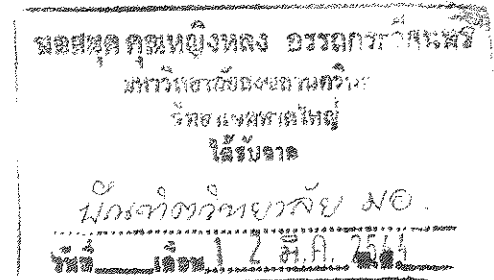 หอสมุดคุณหญิงหลง อรรถกระวีสุนทร
มหาวิทยาลัยสงขลานครินทร์
วิทยาเขตหาดใหญ่
ได้รับจาก
บัณฑิตวิทยาลัย มอ.
วันที่ เดือน 1 2 มี.ค. 2564